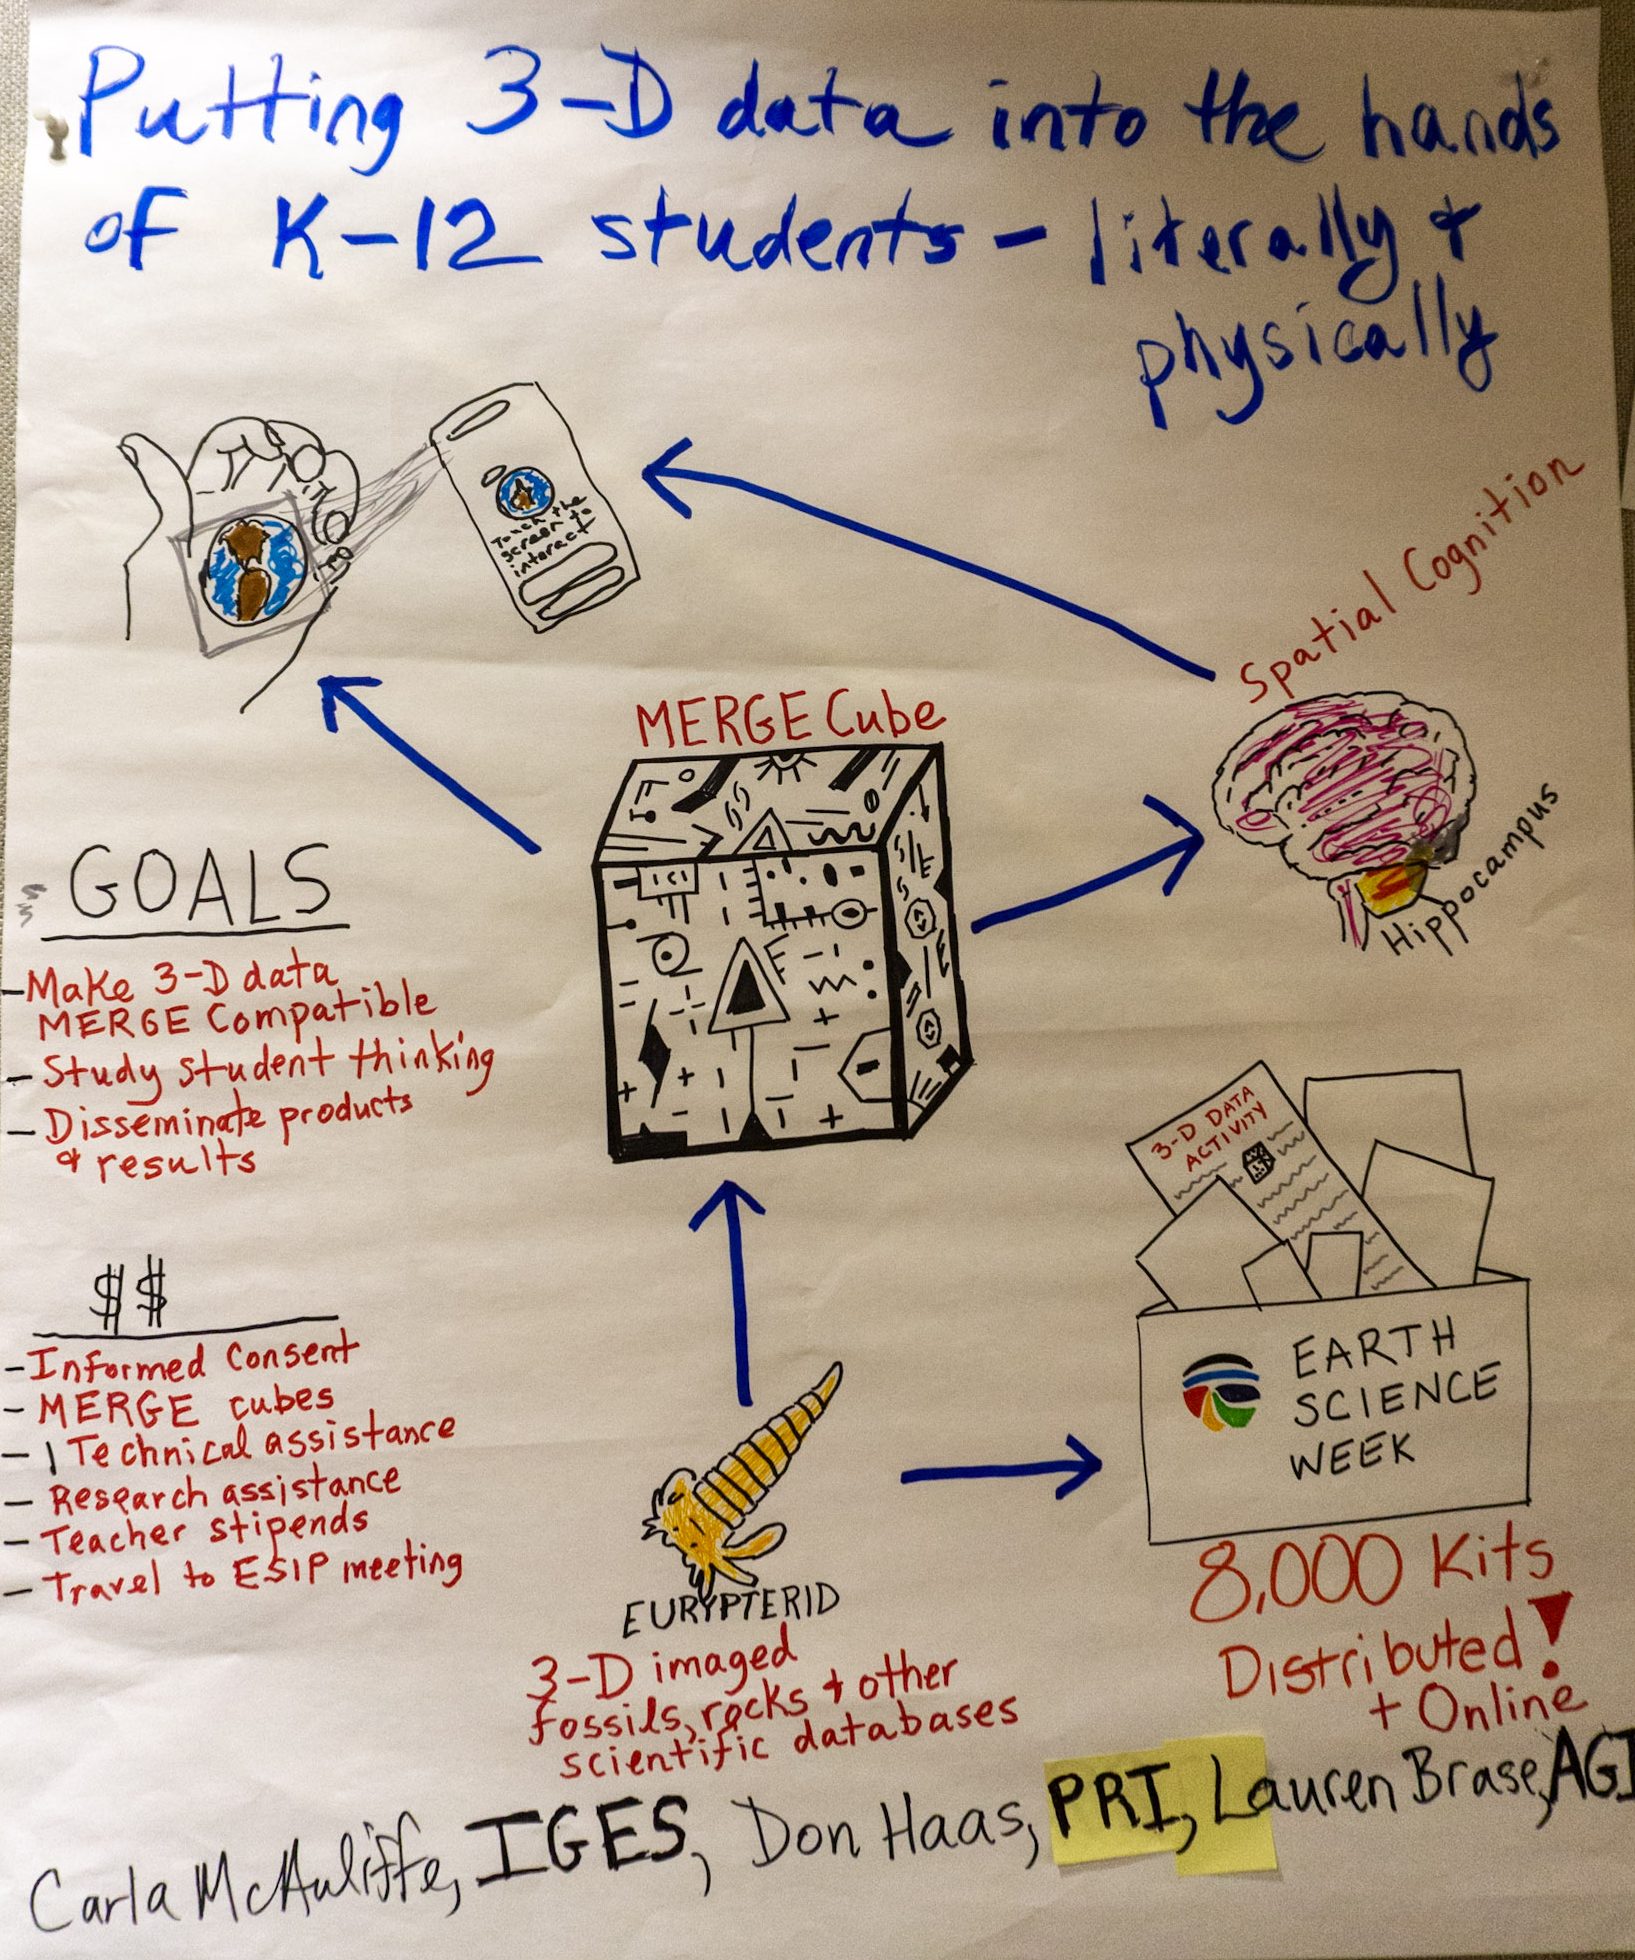 Putting 3-D data into the hands
of K-12 students - literally &
physically
Touch the
screen to
interact
Spatial Cognition
MERGE Cube
Hippocampus
GOALS
- Make 3-D data
MERGE Compatible
- Study student thinking
- Disseminate products
& results
3-D DATA
ACTIVITY
EARTH
SCIENCE
WEEK
$$
- Informed Consent
- MERGE cubes
- Technical assistance
- Research assistance
- Teacher stipends
- Travel to ESIP meeting
EURYPTERID
3-D imaged
fossils, rocks & other
scientific databases
8,000 Kits
Distributed!
+ Online
Carla McAuliffe, IGES, Don Haas, PRI, Lauren Brase, AGI